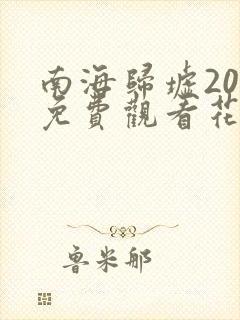 南海歸墟20
免費觀看花
魯米那